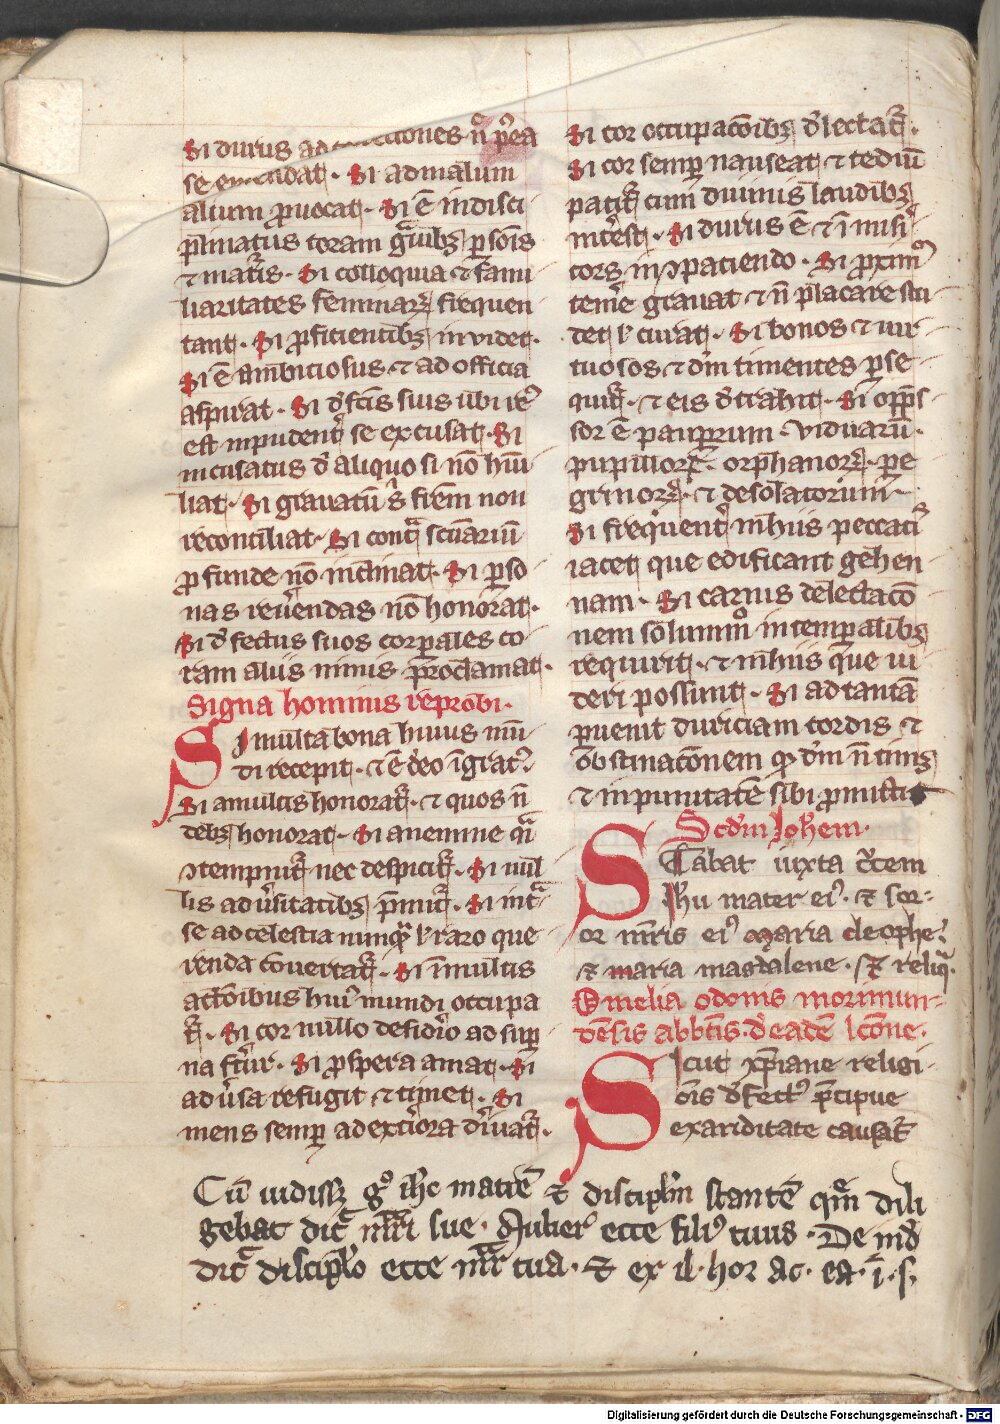 Si durus ad n̄ p̱ea
se emendat · Si ad malum
alium ꝓuocat · Si ē indisci-
plinatus coram g̃uibꝫ ꝑsōis
⁊ mat̉is · Si colloquia ⁊ fami-
liaritates feminaꝝ frequen-
tant · Si ꝓficientibꝫ inuidet ·
Si ē ambiciosus ⁊ ad officia
aspirat · Si d̉ fc̄is suis ubi
est inpudent̉ se excusat · Si
incusatus d̉ aliquo si nō hūi-
liat · Si grauatū s̉ frēm non
reconciliat · Si cont̃ scūariū
ꝓfunde nō inclinat · Si ꝑso-
nas reủendas nō honorat ·
Si d̉fectus suos corꝑales co-
ram aliis nimis p̄roclamat ·
Signa hominis reprobi ·
Si multa bona huius mū-
di recepit · ⁊ ē deo īgrat⁹
Si a multis honorat̉ · ⁊ quos n̄
debꝫ honorat · Si a nemine q̃i
ↄtempnit̉ nec despicit̉ · Si nul-
lis adủsitatibꝫ p̄mit̉ · Si int̃
se ad celestia nunqꝫ l̉ raro que-
renda cōuertat̉ · Si ī multis
actōibus hui⁹ mundi occupa-
t̉ · Si cor nullo desid̉io ad suꝑ-
na fert̉ur · Si ꝓspera amat · Si
adủsa refugit ⁊ timet · Si
mens semꝑ ad ext̉iora d̉iuat̉ ·
Si cor occupacōibꝫ d̉lectat̉ ·
Si cor semꝑ nauseat ⁊ tediū
patit̉ cum diuinis laudibꝫ
int̉est · Si durus ē ⁊ ī mis̉i-
cors in ↄpaciendo · Si ꝓxim̄
tem̉e grauat ⁊ n̄ placare stu-
det l̉ curat · Si bonos ⁊ uir-
tuosos ⁊ dm̄ timentes ꝑse-
quit̉ · ⁊ eis d̉trahit · Si opp̄s-
sor ē pauꝑum · viduarū ·
pupilloꝝ · orphanoꝝ · pe-
g̉noꝝ · ⁊ desolatorum ·
Si frequent̉ in hiis peccat̉
iacet que edificant gehen-
nam · Si carnis delectacō-
nem solummō in temꝑalibꝫ
requirit · ⁊ in hiis que ui-
deri possunt · Si ad tantā
ꝑuenit duriciam cordis ⁊
obstinacōnem qꝫ dm̄ n̄ timꝫ
⁊ inpunitatē sibi ꝓmittit
Scd̄m Joh̄em ·
Stabat iuxta c̉cem
ih̄u mater ei⁹ · ⁊ sor-
or m̄ris ei⁹ maria cleophe ·
⁊ maria magdalene · ⁊ reliq̃ ·
Omelia odonis morimun-
dēsis abbatis · d̉ eadē lc̄one ·
Sicut xp̄iane religi-
ōis d̉fect⁹ p̄cipue
ex ariditate causat̉
Cū uidissꝫ g̊ ih̄c matrē ⁊ discipl̄m stantē quē dili-
gebat dic̃ m̄ri sue · Mulier ecce fili⁹ tuus · Deind̉
dic̃ discipl̄o ecce m̄r tua · Et ex il · hor ac · ea · ī · s ·
Digitalisierung gefördert durch die Deutsche Forschungsgemeinschaft - DFG